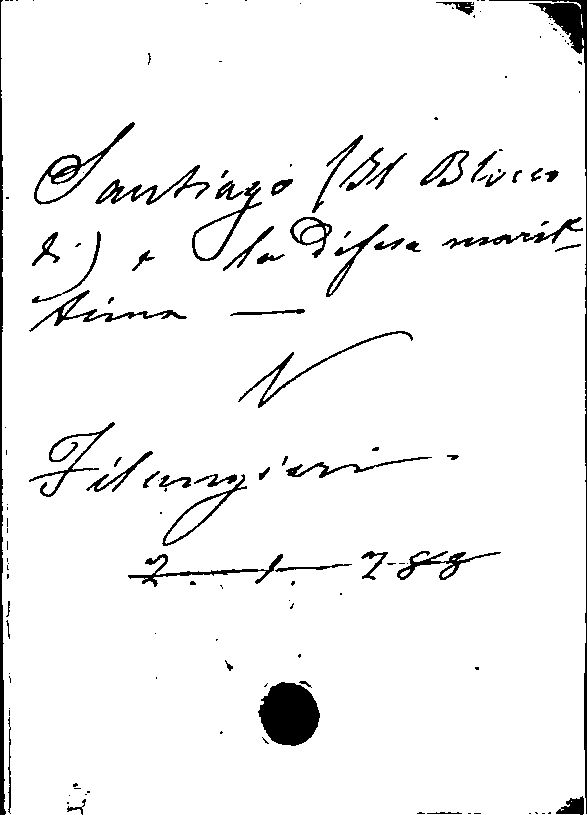 Santiago (Il Blocco
di) e la difesa marit-
tima —
V
Filangieri.
2. 1. 788